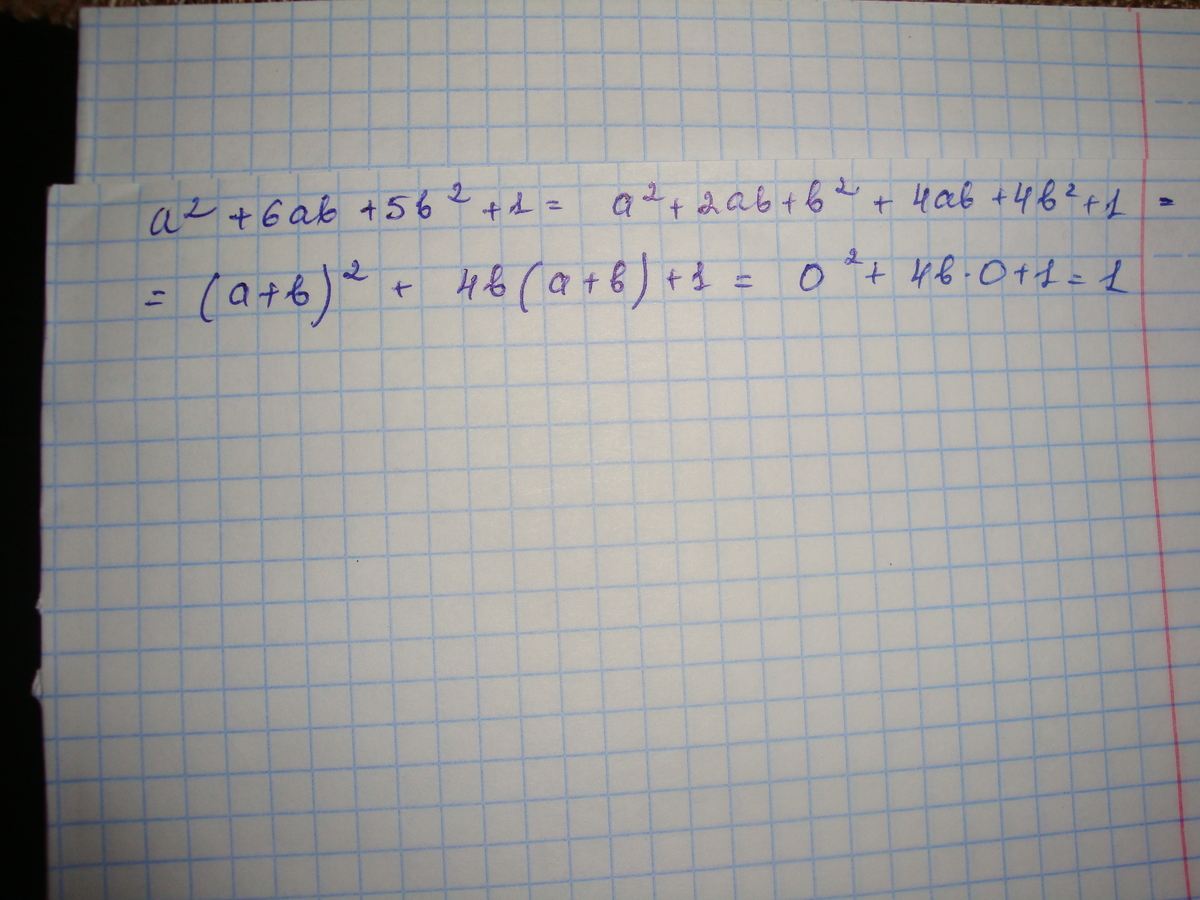 a² + 6ab + 5b² + 1 = a² + 2ab + b² + 4ab + 4b² + 1 =
= (a+b)² + 4b(a+b) + 1 = 0² + 4b·0 + 1 = 1